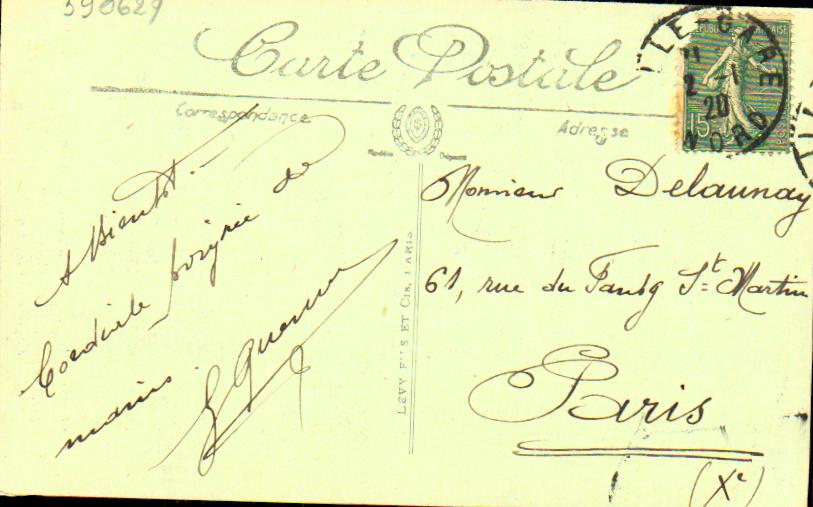 390629
Carte Postale
Correspondance
Adresse
RÉPUBLIQUE FRANÇAISE
15
LLE-GARE
2 -1
20
NORD
A Bientôt.
Cordiale poignée de
mains.
Monsieur Delaunay
61, rue du Faubg St Martin
Paris
(Xe)
LEVY FILS ET CIE, PARIS